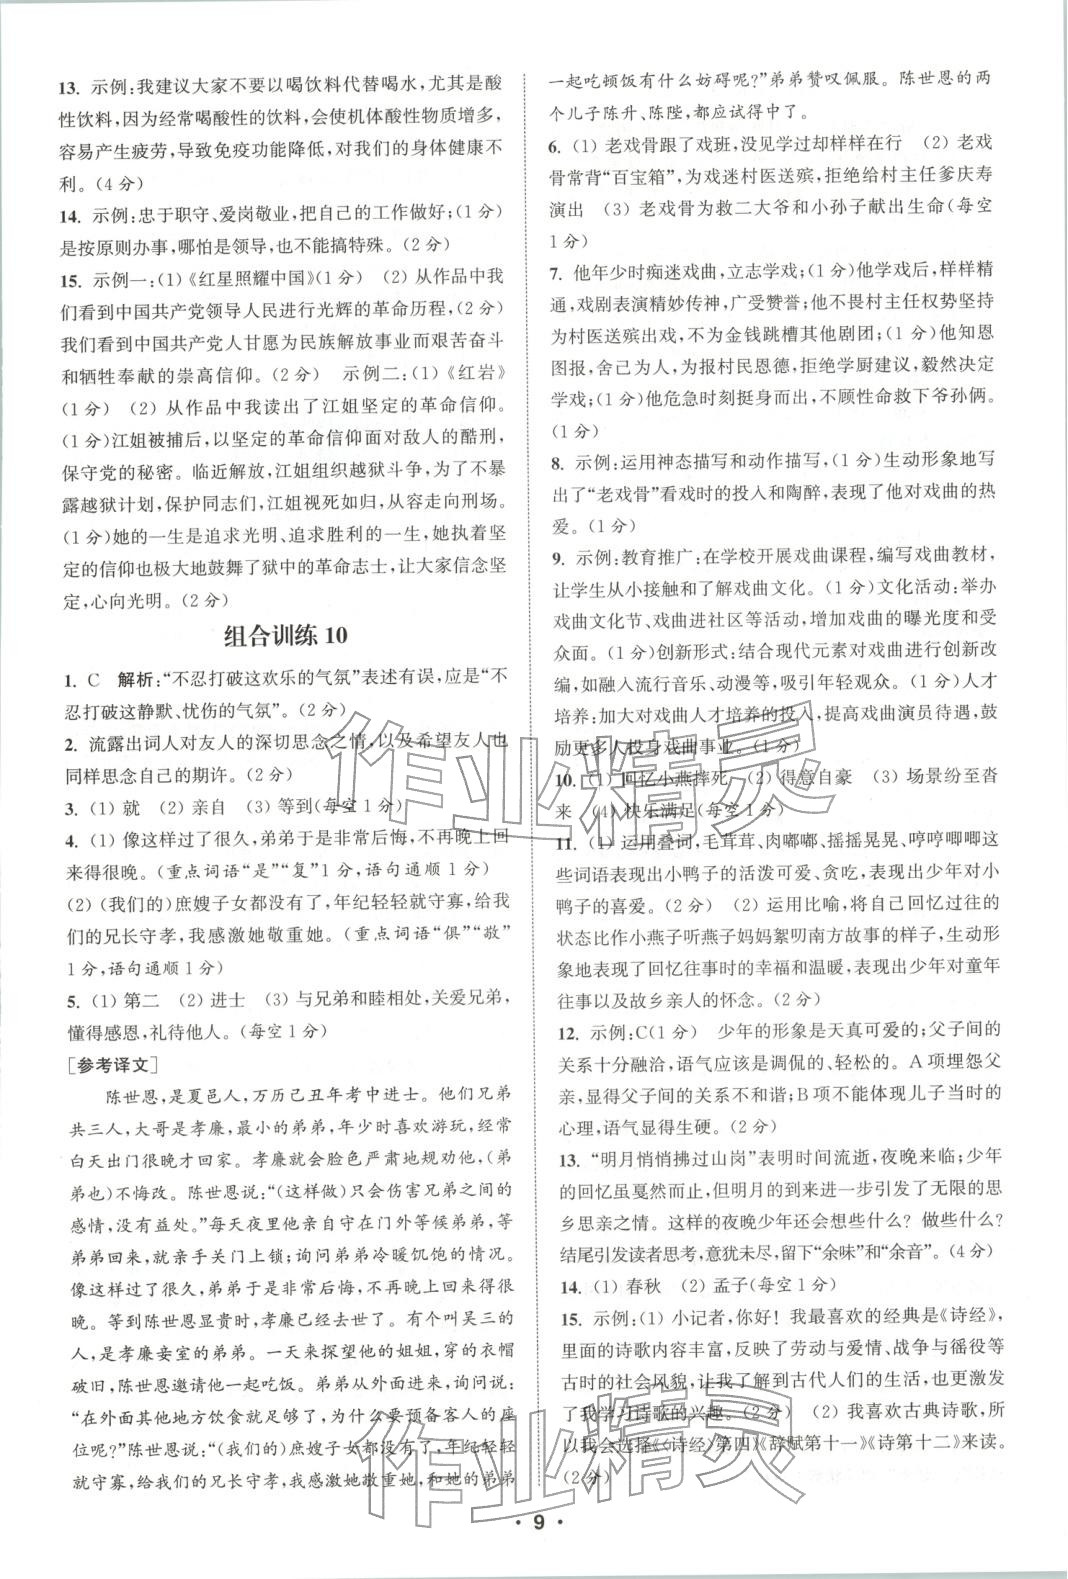 13. 示例:我建议大家不要以喝饮料代替喝水,尤其是酸
性饮料,因为经常喝酸性的饮料,会使机体酸性物质增多,
容易产生疲劳,导致免疫功能降低,对我们的身体健康不
利。(4分)
14. 示例:忠于职守、爱岗敬业,把自己的工作做好;(1分)
是按原则办事,哪怕是领导,也不能搞特殊。(2分)
15. 示例一:(1)《红星照耀中国》(1分) (2)从作品中我
们看到中国共产党领导人民进行光辉的革命历程,(2分)
我们看到中国共产党人甘愿为民族解放事业而艰苦奋斗
和牺牲奉献的崇高信仰。(2分) 示例二:(1)《红岩》
(1分) (2)从作品中我读出了江姐坚定的革命信仰。
(1分)江姐被捕后,以坚定的革命信仰面对敌人的酷刑,
保守党的秘密。临近解放,江姐组织越狱斗争,为了不暴
露越狱计划,保护同志们,江姐视死如归,从容走向刑场。
(1分)她的一生是追求光明、追求胜利的一生,她执着坚
定的信仰也极大地鼓舞了狱中的革命志士,让大家信念坚
定,心向光明。(2分)
组合训练10
1. C 解析:“不忍打破这欢乐的气氛”表述有误,应是“不
忍打破这静默、忧伤的气氛”。(2分)
2. 流露出词人对友人的深切思念之情,以及希望友人也
同样思念自己的期许。(2分)
3. (1)就 (2)亲自 (3)等到(每空1分)
4. (1)像这样过了很久,弟弟于是非常后悔,不再晚上回
来得很晚。(重点词语“是”“复”1分,语句通顺1分)
(2)(我们的)庶嫂子女都没有了,年纪轻轻就守寡,给我
们的兄长守孝,我感激她敬重她。(重点词语“俱”“敬”
1分,语句通顺1分)
5. (1)第二 (2)进士 (3)与兄弟和睦相处,关爱兄弟,
懂得感恩,礼待他人。(每空1分)
[参考译文]
陈世恩,是夏邑人,万历己丑年考中进士。他们兄弟
共三人,大哥是孝廉,最小的弟弟,年少时喜欢游玩,经常
白天出门很晚才回家。孝廉就会脸色严肃地规劝他,(弟
弟也)不悔改。陈世恩说:“(这样做)只会伤害兄弟之间的
感情,没有益处。”每天夜里他亲自守在门外等候弟弟,等
弟弟回来,就亲手关门上锁;询问弟弟冷暖饥饱的情况。
像这样过了很久,弟弟于是非常后悔,不再晚上回来得很
晚。等到陈世恩显贵时,孝廉已经去世了。有个叫吴三的
人,是孝廉妾室的弟弟。一天来探望他的姐姐,穿的衣帽
破旧,陈世恩邀请他一起吃饭。弟弟从外面进来,询问说:
“在外面其他地方饮食就足够了,为什么要预备客人的座
位呢?”陈世恩说:“(我们的)庶嫂子女都没有了,年纪轻轻
就守寡,给我们的兄长守孝,我感激她敬重她,和她的弟弟
一起吃顿饭有什么妨碍呢?”弟弟赞叹佩服。陈世恩的两
个儿子陈升、陈陛,都应试得中了。
6. (1)老戏骨跟了戏班,没见学过却样样在行 (2)老戏
骨常背“百宝箱”,为戏迷村医送殡,拒绝给村主任爹庆寿
演出 (3)老戏骨为救二大爷和小孙子献出生命(每空
1分)
7. 他年少时痴迷戏曲,立志学戏;(1分)他学戏后,样样精
通,戏剧表演精妙传神,广受赞誉;他不畏村主任权势坚持
为村医送殡出戏,不为金钱跳槽其他剧团;(1分)他知恩
图报,舍己为人,为报村民恩德,拒绝学厨建议,毅然决定
学戏;(1分)他危急时刻挺身而出,不顾性命救下爷孙俩。
(1分)
8. 示例:运用神态描写和动作描写,(1分)生动形象地写
出了“老戏骨”看戏时的投入和陶醉,表现了他对戏曲的热
爱。(1分)
9. 示例:教育推广:在学校开展戏曲课程,编写戏曲教材,
让学生从小接触和了解戏曲文化。(1分)文化活动:举办
戏曲文化节、戏曲进社区等活动,增加戏曲的曝光度和受
众面。(1分)创新形式:结合现代元素对戏曲进行创新改
编,如融入流行音乐、动漫等,吸引年轻观众。(1分)人才
培养:加大对戏曲人才培养的投入,提高戏曲演员待遇,鼓
励更多人投身戏曲事业。(1分)
10. (1)回忆小燕摔死 (2)得意自豪 (3)场景纷至沓
来 (4)快乐满足(每空1分)
11. (1)运用叠词,毛茸茸、肉嘟嘟、摇摇晃晃、哼哼唧唧这
些词语表现出小鸭子的活泼可爱、贪吃,表现出少年对小
鸭子的喜爱。(2分) (2)运用比喻,将自己回忆过往的
状态比作小燕子听燕子妈妈絮叨南方故事的样子,生动形
象地表现了回忆往事时的幸福和温暖,表现出少年对童年
往事以及故乡亲人的怀念。(2分)
12. 示例:C(1分) 少年的形象是天真可爱的;父子间的
关系十分融洽,语气应该是调侃的、轻松的。A项埋怨父
亲,显得父子间的关系不和谐;B项不能体现儿子当时的
心理,语气显得生硬。(2分)
13. “明月悄悄拂过山岗”表明时间流逝,夜晚来临;少年
的回忆虽戛然而止,但明月的到来进一步引发了无限的思
乡思亲之情。这样的夜晚少年还会想些什么?做些什么?
结尾引发读者思考,意犹未尽,留下“余味”和“余音”。(4分)
14. (1)春秋 (2)孟子(每空1分)
15. 示例:(1)小记者,你好!我最喜欢的经典是《诗经》,
里面的诗歌内容丰富,反映了劳动与爱情、战争与徭役等
古时的社会风貌,让我了解到古代人们的生活,也更激发
了我学习诗歌的兴趣。(2分) (2)我喜欢古典诗歌,所
以我会选择《〈诗经〉第四》《辞赋第十一》《诗第十二》来读。
(2分)
作业精灵
作业精灵
• 9 •